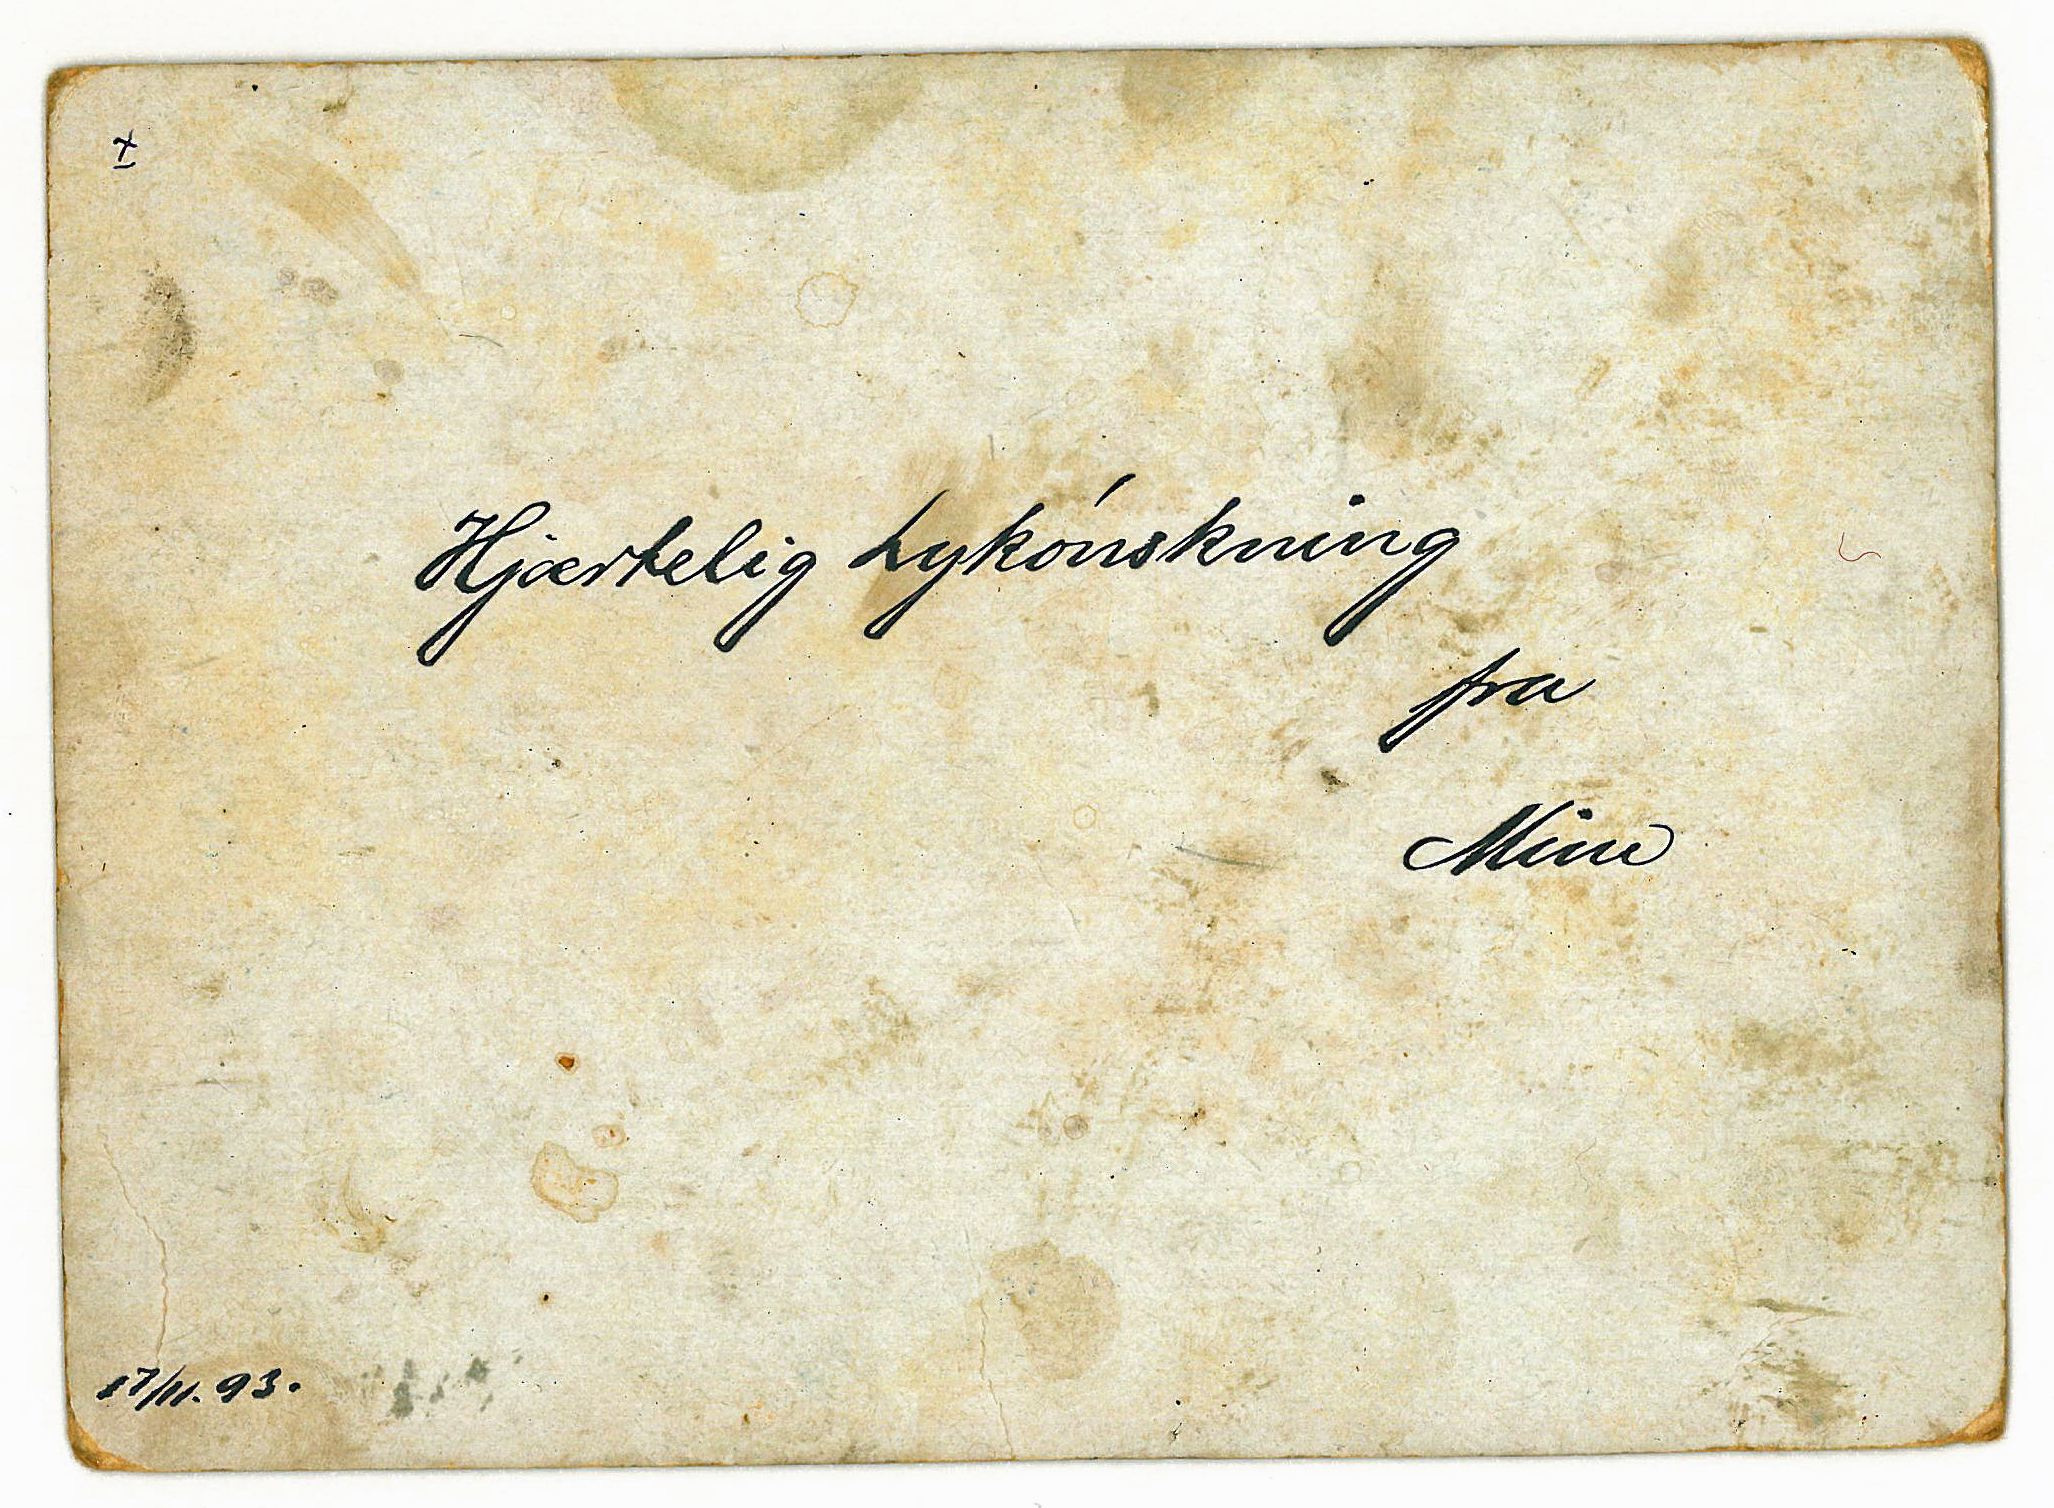 x
Hjærtelig Lykónskning
fra
Mine
17/11. 93.